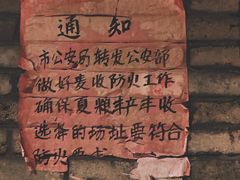 通知
市公安局转发公安部
做好麦收防火工作
确保夏粮丰产丰收
选择的场址要符合
防火要求